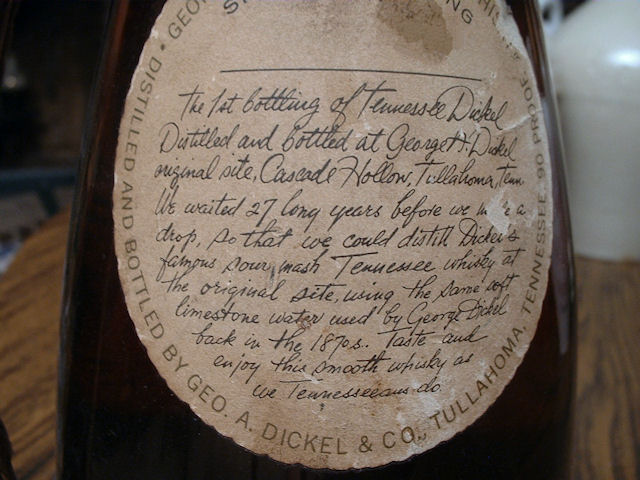 The 1st bottling of Tennessee Dickel
Distilled and bottled at George A. Dickel
original site, Cascade Hollow, Tullahoma, Tenn.
We waited 27 long years before we a
drop, so that we could distill Dickel's
famous sour mash Tennessee whisky at
the original site, using the same soft
limestone water used by George Dickel
back in the 1870s. Taste and
enjoy this smooth whisky as
we Tennesseeans do
DISTILLED AND BOTTLED BY GEO. A. DICKEL & CO., TULLAHOMA, TENNESSEE. 90 PROOF
• GEO